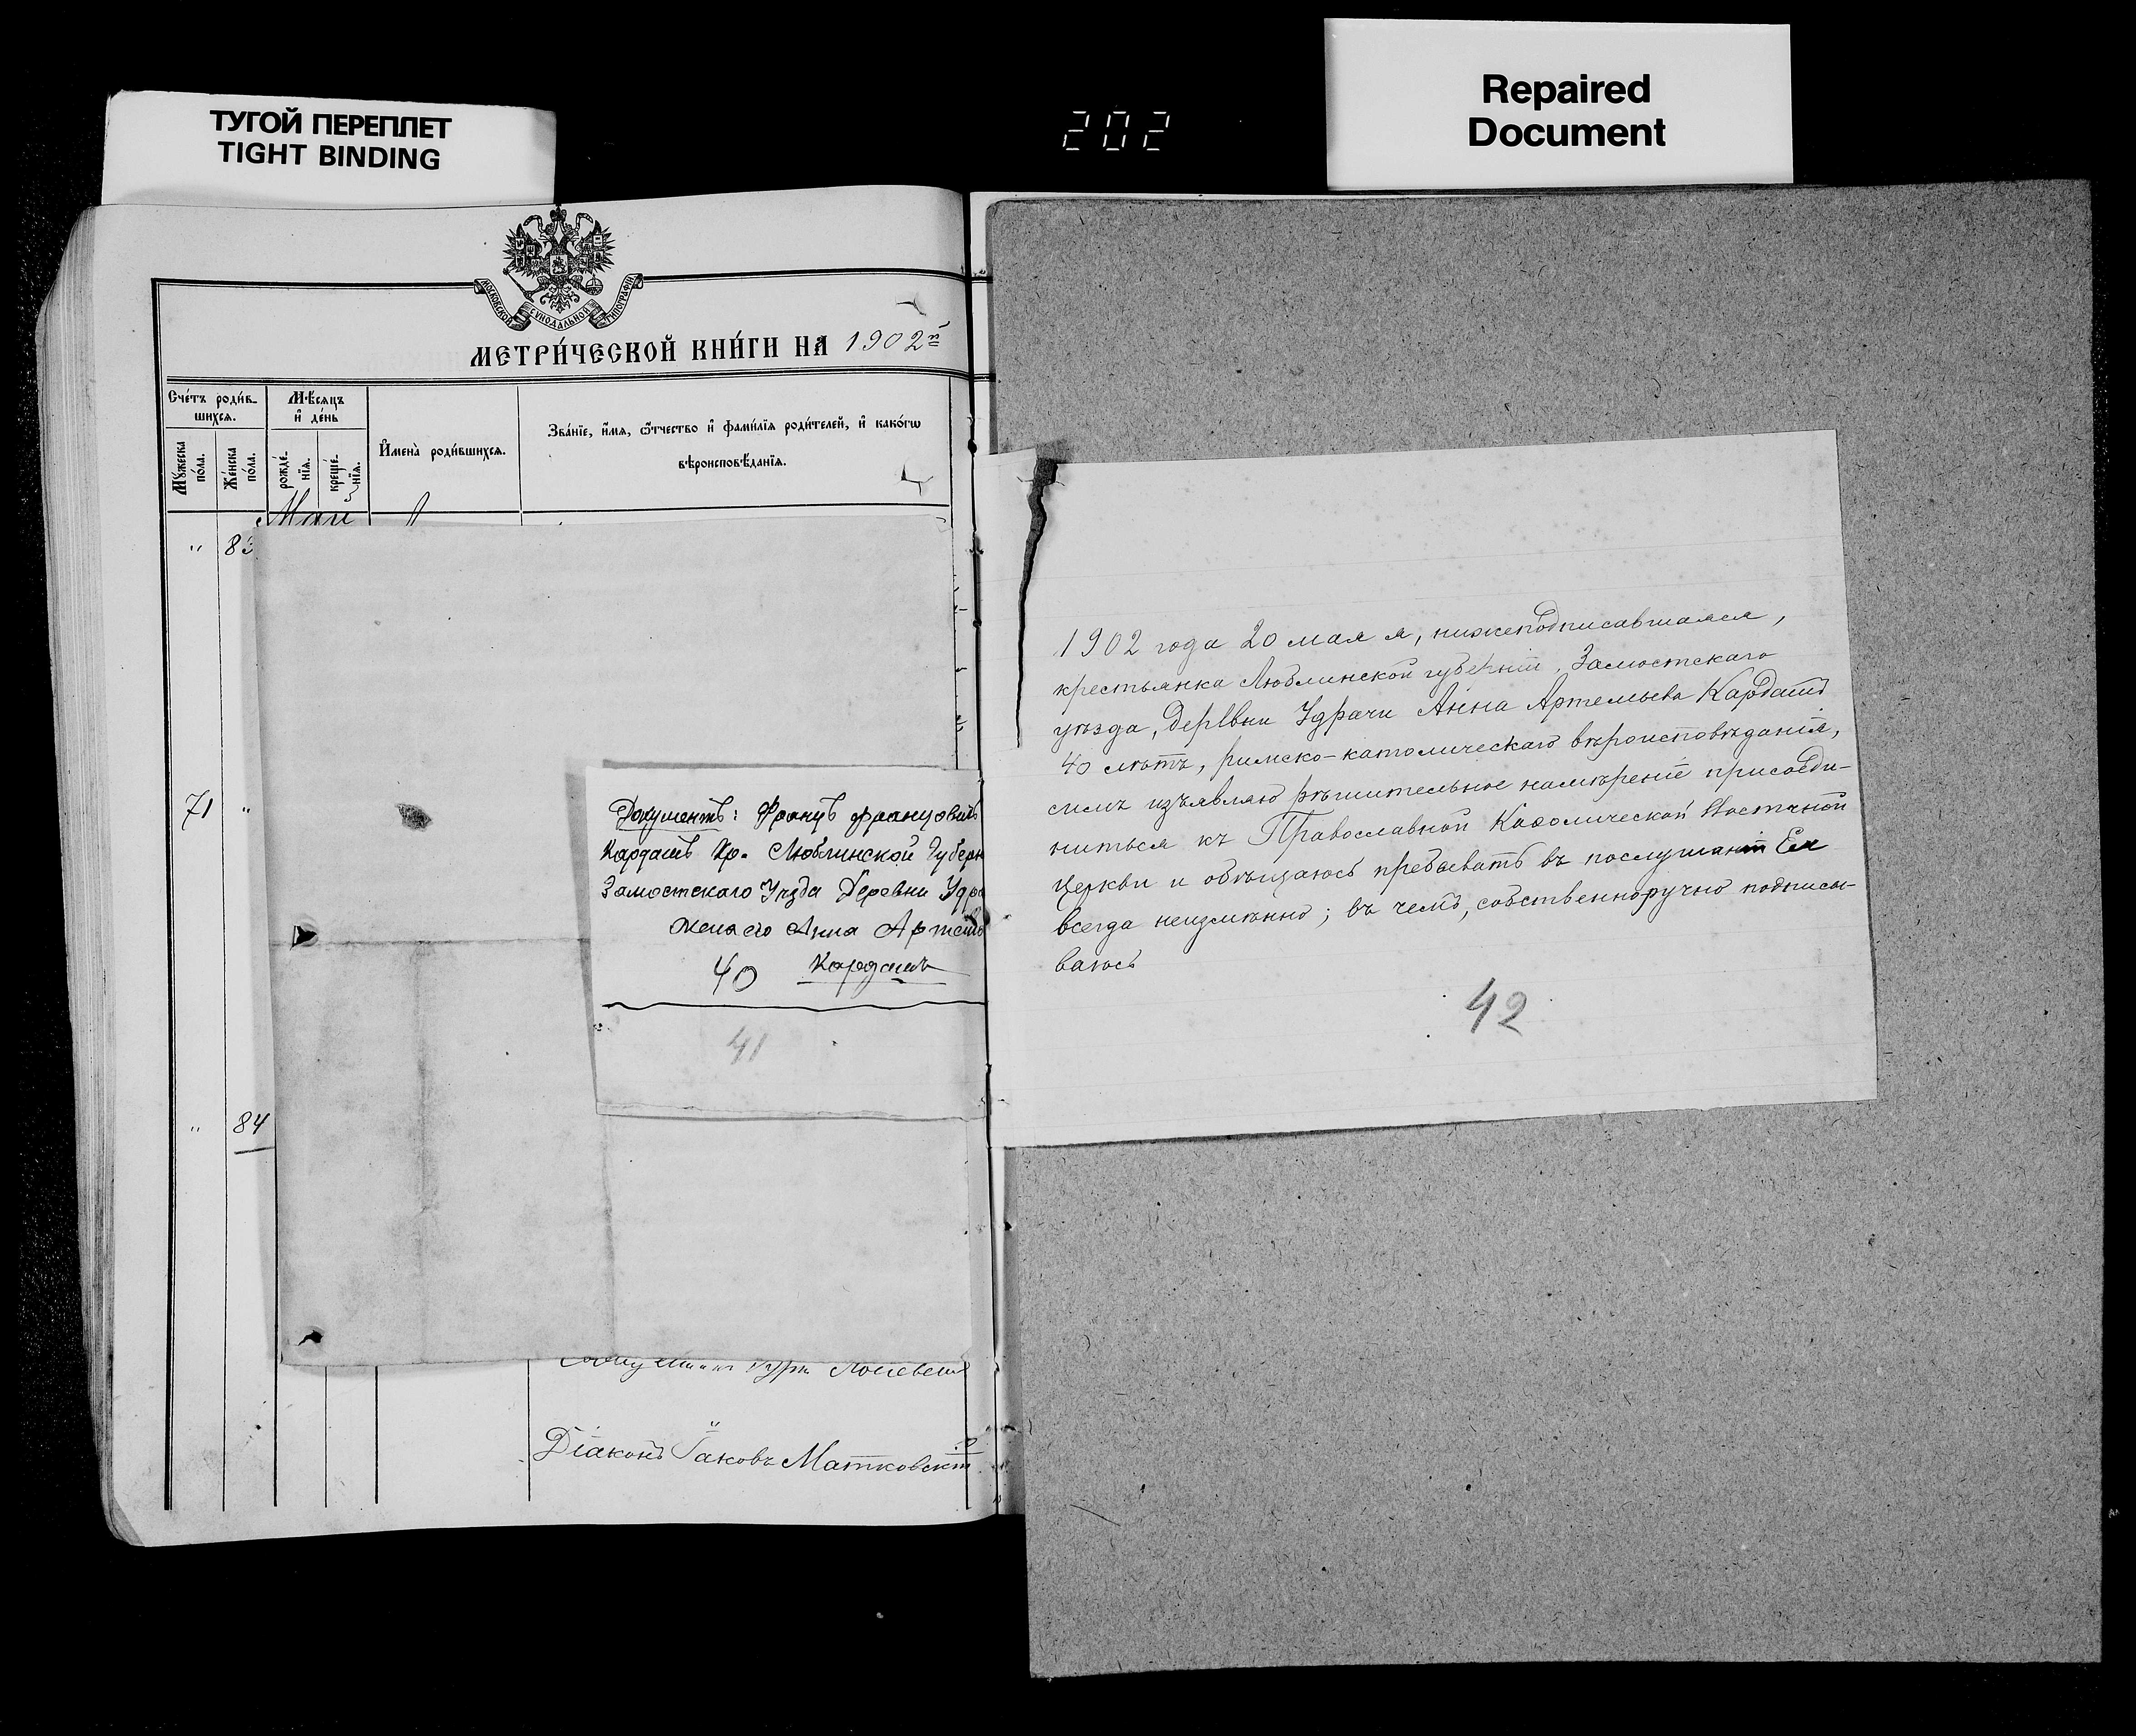 ТУГОЙ ПЕРЕПЛЕТ
TIGHT BINDING
202
Repaired
Document
МОСКОВСКОЙ СѴНОДАЛЬНОЙ ТИПОГРАФІИ
МЕТРИ́ЧЕСКОЙ КНИ́ГИ НА 1902й
Сче́тъ роди́в-
шихсѧ.
Мꙋ́жеска
по́ла.
Же́нска
по́ла.
Мѣ́сяцъ
и҆ де́нь
рожде́-
нїѧ.
креще́-
нїѧ.
И҆мена̀ роди́вшихсѧ.
Зва́нїе, и҆́мѧ, ѻ҆́тчество и҆ фами́лїѧ роди́телей, и҆ како́гѡ
вѣроисповѣ́данїѧ.
Маи
" 83
71 "
" 84
Документъ: Францъ Францовичъ
Кардашъ Кр. Люблинской Губерн
Замостскаго Уѣзда Деревни Удра
жена его Анна Артемь
40 Кардашъ
41
Діаконъ Іаковъ Матковскій
1902 года 20 мая я, нижеподписавшаяся,
крестьянка Люблинской губерніи, Замостскаго
уѣзда, деревни Удрачи Анна Артемьева Кардашъ
40 лѣтъ, римско-католическаго вѣроисповѣданія,
симъ изъявляю рѣшительное намѣреніе присоеди-
ниться къ Православной Каѳолической Восточной
Церкви и обѣщаюсь пребывать въ послушаніи Ея
всегда неизмѣнно; въ чемъ, собственноручно подписы-
ваюсь
42